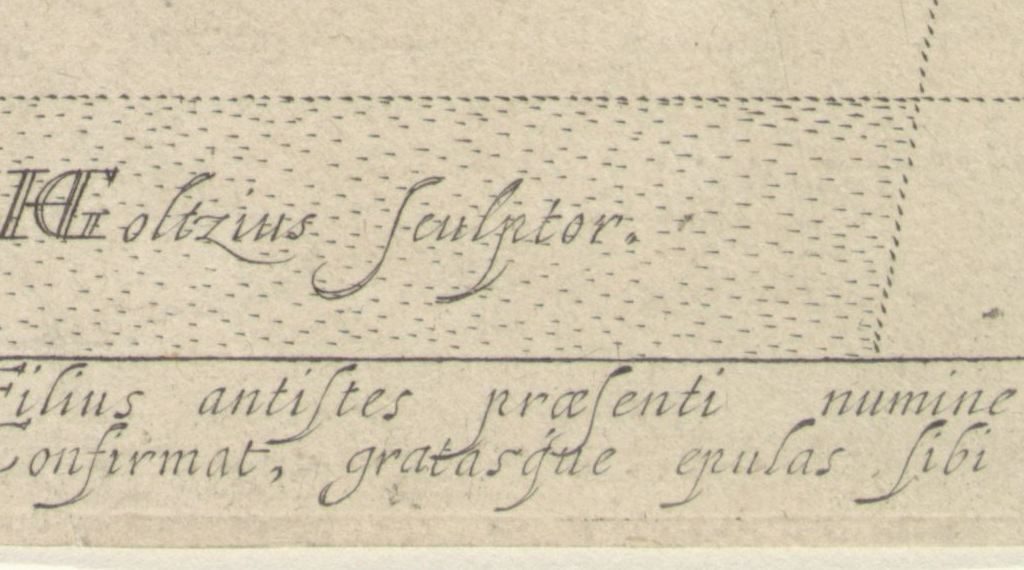 HGoltzius ſculptor.
Filius antiſtes præſenti numine
Confirmat, gratasq́ue epulas ſibi